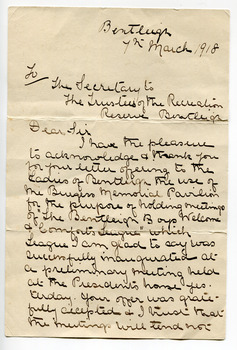 Bentleigh
7th March 1918
To
The Secretary to
The Trustees of the Recreation
Reserve Bentleigh
Dear Sir
I have the pleasure
to acknowledge & thank you
for your letter offering to the
Ladies of Bentleigh the use of
the Burgess Memorial Pavilion
for the purpose of holding meetings
of "The Bentleigh Boys Welcome
& Comforts League" which
League I am glad to say was
successfully inaugurated at
a preliminary meeting held
at the Presidents house yes-
terday. Your offer was grate-
fully accepted & I trust that
the meetings will tend not